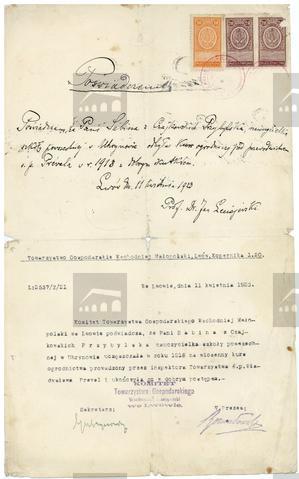 Poświadczenie
Poświadczam, że Pani Sabina z Czajkowskich Przybylska nauczycielka
szkoły powszechnej w Uhrynowie odbyła kurs ogrodniczy pod
ś. p. Prevala w r. 1918 z dobrym skutkiem.
Lwów dn. 11 kwietnia 1923
Prof. Dr. Jan
Towarzystwo Gospodarskie Wschodniej Małopolski, Lwów, Kopernika 1.20.
L:2537/2/21 We Lwowie, dnia 11 kwietnia 1923.
Komitet Towarzystwa Gospodarskiego Wschodniej Mało-
polski we Lwowie poświadcza, że Pani S a b i n a z Czaj-
kowskich P r z y b y l s k a nauczycielka szkoły powszech-
nej w Uhrynowie uczęszczała w roku 1918 na wiosenny kurs
ogrodnictwa prowadzony przez inspektora Towarzystwa ś.p.
Prevel i ukończyła go z dobrym postępem.
KOMITET
Towarzystwa Gospodarskiego
Wschodniej Małopolski
we LWOWIE.
Sekretarz: Prezes: